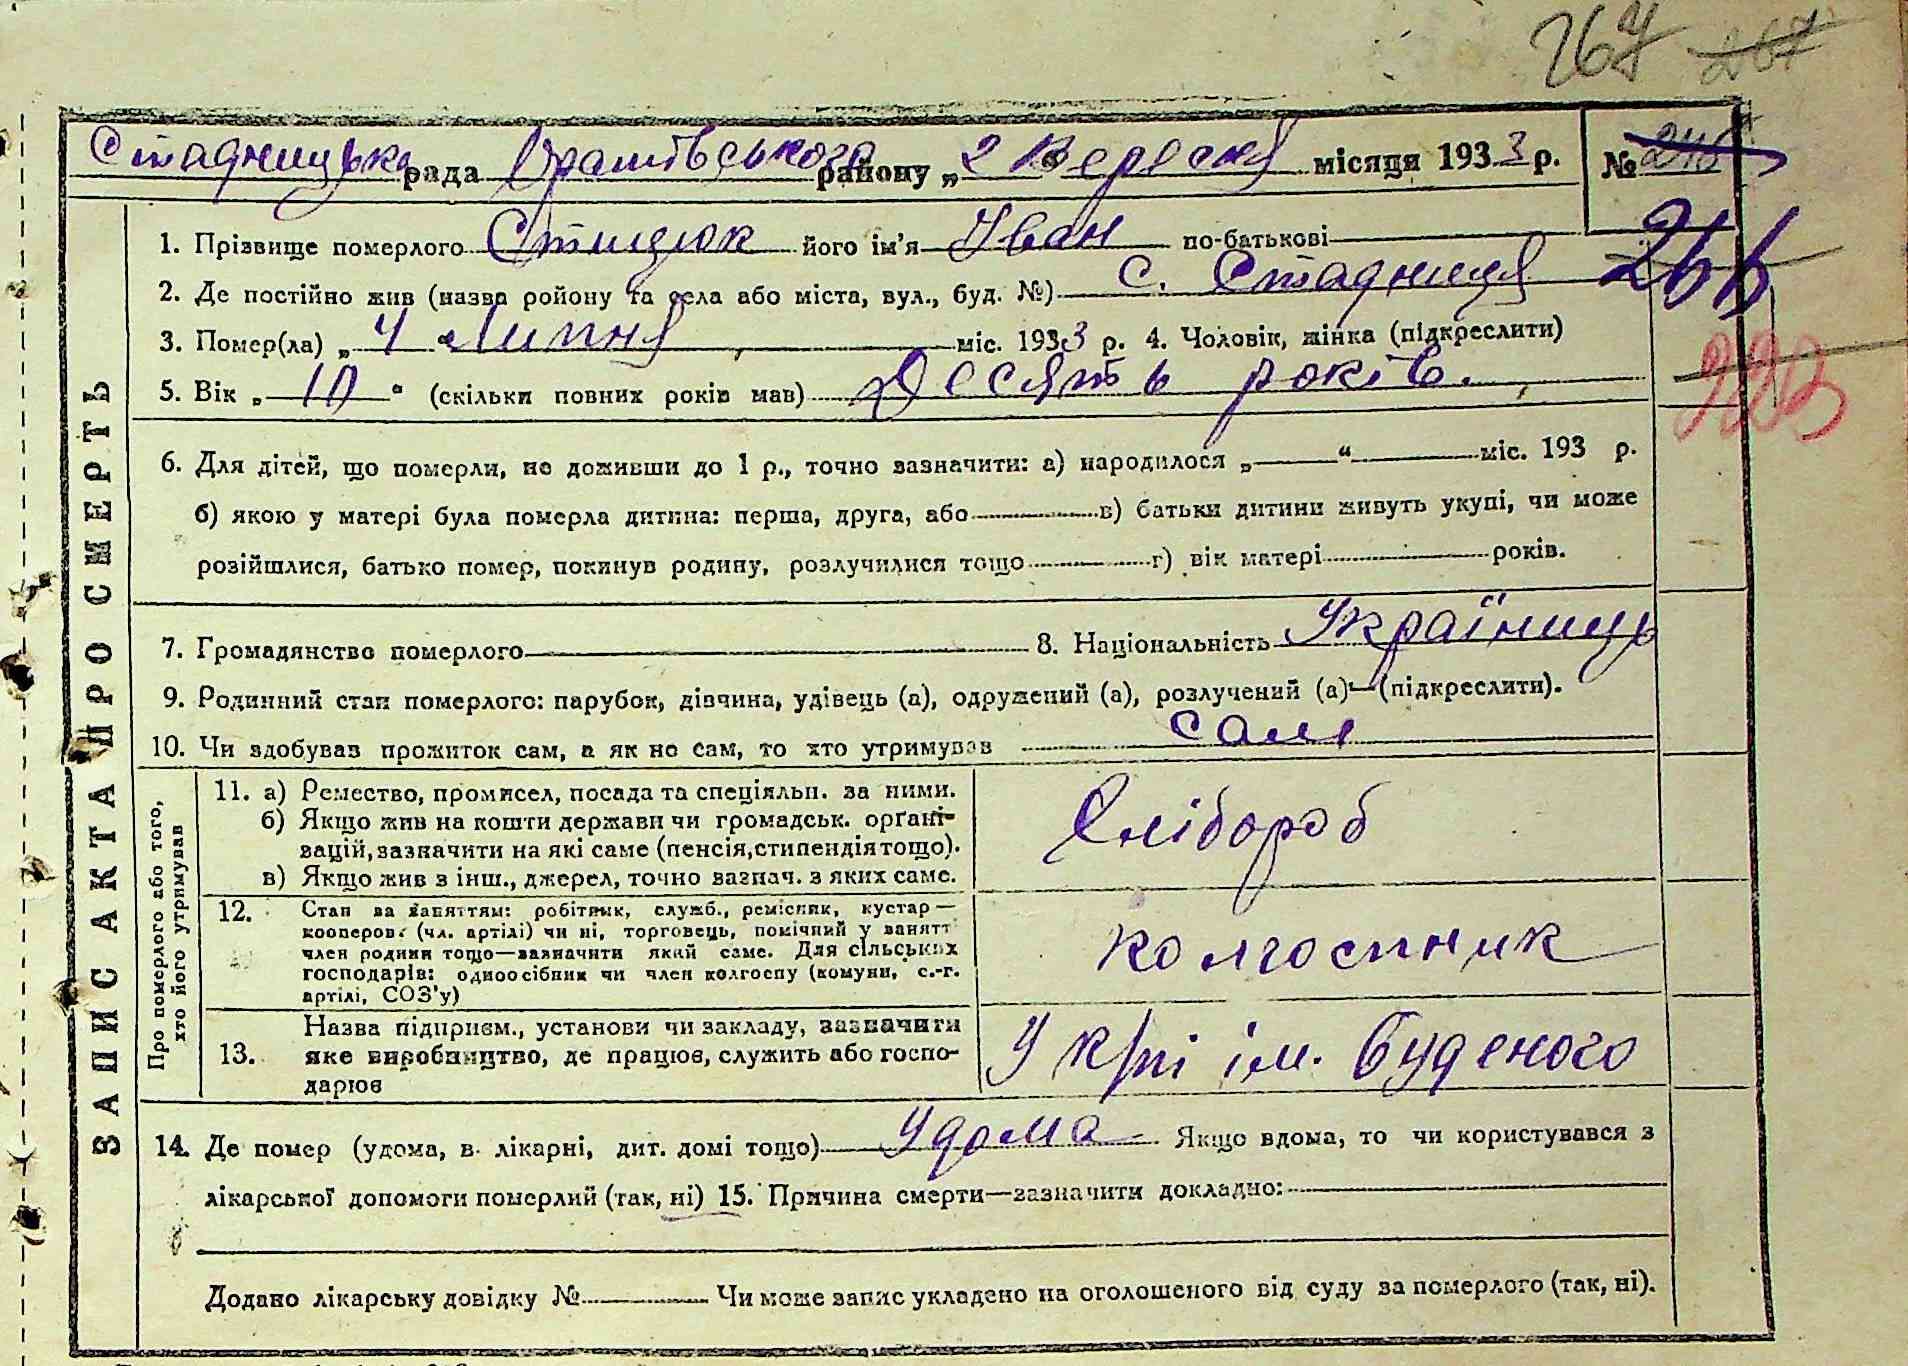 267 267
Стадницька рада Оратівського району „ 2 Вересня місяця 1933 р. № 246
266
1. Прізвище померлого Стицюк його ім'я Іван по-батькові
2. Де постійно жив (назва ройону та села або міста, вул., буд. №) с. Стадниця
3. Помер(ла) „ 4 " Липня міс. 1933 р. 4. Чоловік, жінка (підкреслити)
223
5. Вік „ 10 " (скільки повних років мав) Десять років.
6. Для дітей, що померли, не доживши до 1 р., точно зазначити: а) народилося „ " міс. 193 р.
б) якою у матері була померла дитина: перша, друга, або в) батьки дитини живуть укупі, чи може
розійшлися, батько помер, покинув родину, розлучилися тощо г) вік матері років.
7. Громадянство померлого 8. Національність Українець
9. Родинний стан померлого: парубок, дівчина, удівець (а), одружений (а), розлучений (а)—(підкреслити).
10. Чи здобував прожиток сам, а як не сам, то хто утримував сам
ЗАПИС АКТА ПРО СМЕРТЬ
Про померлого або того, хто його утримував
11. а) Ремество, промисел, посада та спеціяльн. за ними.
б) Якщо жив на кошти держави чи громадськ. орґані-
зацій, зазначити на які саме (пенсія, стипендія тощо).
в) Якщо жив з інш., джерел, точно зазнач. з яких саме.
Хлібороб
12. Стан за заняттям: робітник, служб., ремісник, кустар—
кооперов. (чл. артілі) чи ні, торговець, помічний у занятт
член родини тощо—зазначити який саме. Для сільських
господарів: одноосібник чи член колгоспу (комуни, с.-г.
артілі, СОЗ'у)
колгоспник
13. Назва підприєм., установи чи закладу, зазначити
яке виробництво, де працює, служить або госпо-
дарює
У к/гі ім. Буденого
14. Де помер (удома, в лікарні, дит. домі тощо) Удома Якщо вдома, то чи користувався з
лікарської допомоги померлий (так, ні) 15. Причина смерти—зазначити докладно:
Додано лікарську довідку № Чи може запис укладено на оголошеного від суду за померлого (так, ні).